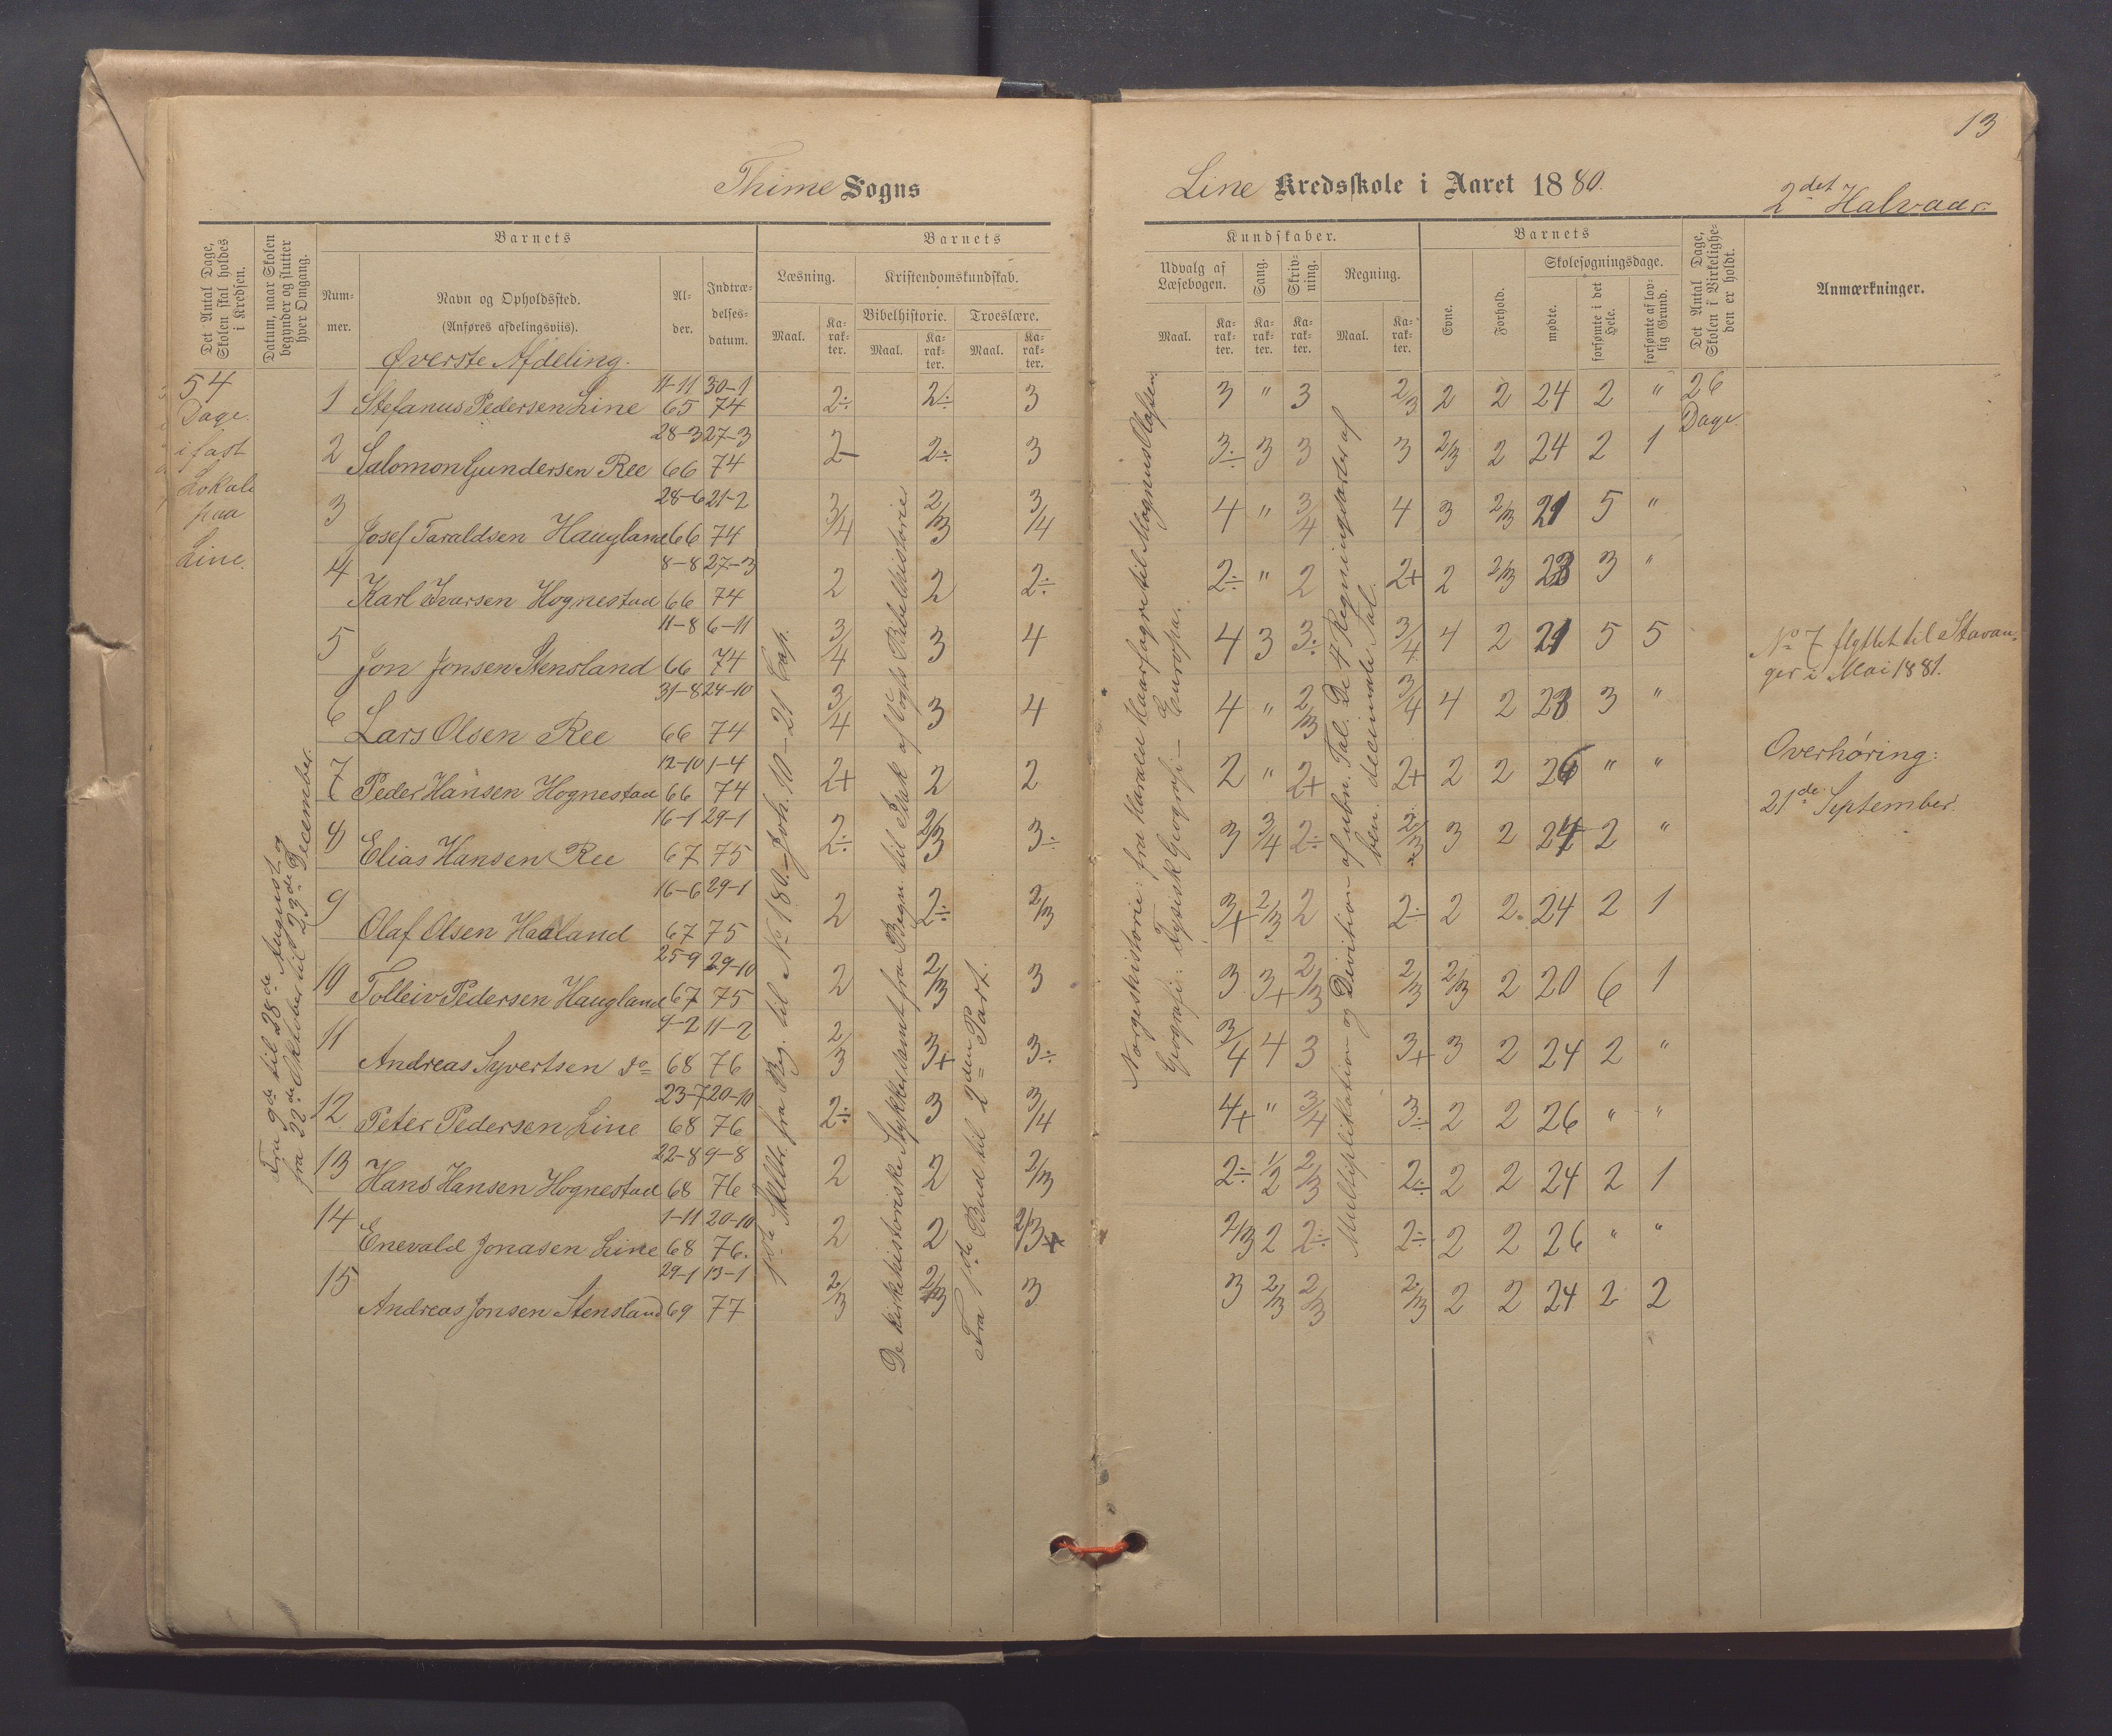 13
Thime Sogns
Line Kredsskole i Aaret 1880.
2det Halvaar.
Det Antal Dage, Skolen skal holdes i Kredsen.
Datum, naar Skolen begynder og slutter hver Omgang.
Barnets
Num-mer.
Navn og Opholdssted.
(Anføres afdelingsviis).
Øverste Afdeling.
Al-der.
Indtræ-delses-datum.
Barnets
Læsning.
Kristendomskundskab.
Bibelhistorie.
Troeslære.
Maal.
Ka-rak-ter.
Maal.
Ka-rak-ter.
Maal.
Ka-rak-ter.
Kundskaber.
Udvalg af Læsebogen.
Sang.
Skriv-ning.
Regning.
Maal.
Ka-rak-ter.
Ka-rak-ter.
Ka-rak-ter.
Maal.
Ka-rak-ter.
Barnets
Evne.
Forhold.
Skolesøgningsdage.
mødte.
forsømte i det Hele.
forsømte af lov-lig Grund.
Det Antal Dage, Skolen i Virkelighe-den er holdt.
Anmærkninger.
54
Dage
i fast
Lokale
paa
Line.
Fra 9de til 28de August og
fra 22de Oktober til 23de December.
1 Stefanus Pedersen Line 11-11 65 30-1 74 2÷ 2÷ 3 3 " 3 2/3 2 2 24 2 " 26 Dage.
2 Salomon Gundersen Ree 28-3 66 27-3 74 2- 2÷ 3 3÷ 3 3 3 2/3 2 24 2 1
3 Josef Taraldsen Haugland 28-6 66 21-2 74 3/4 2/3 3/4 4 " 3/4 4 3 2/3 21 5 "
4 Karl Ivarsen Hognestad 8-8 66 27-3 74 2 2 2÷ 2÷ " 2 2+ 2 2/3 23 3 "
5 Jon Jonsen Stensland 11-8 66 6-11 74 3/4 3 4 4 3 3÷ 3/4 4 2 21 5 5
6 Lars Olsen Ree 31-8 66 24-10 74 3/4 3 4 4 " 2/3 3/4 4 2 23 3 "
7 Peder Hansen Hognestad 12-10 66 1-4 74 2+ 2 2 2 " 2+ 2+ 2 2 26 " "
8 Elias Hansen Ree 16-1 67 29-1 75 2÷ 2/3 3÷ 3 3/4 2÷ 2/3 3 2 24 2 "
9 Olaf Olsen Haaland 16-6 67 29-1 75 2 2÷ 2/3 3+ 2/3 2 2÷ 2 2 24 2 1
10 Tolleiv Pedersen Haugland 25-9 67 29-10 75 2 2/3 3 3 3+ 2/3 2/3 2/3 2 20 6 1
11 Andreas Syvertsen do 9-2 68 11-2 76 2/3 3+ 3÷ 3/4 4 3 3+ 3 2 24 2 "
12 Peter Pedersen Line 23-7 68 20-10 76 2÷ 3 3/4 4+ " 3/4 3÷ 2 2 26 " "
13 Hans Hansen Hognestad 22-8 68 9-8 76 2 2 2/3 2÷ 1/2 2/3 2÷ 2 2 24 2 1
14 Enevald Jonasen Line 1-11 68 20-10 76. 2 2 2/3+ 2/3 2 2÷ 2÷ 2 2 26 " "
15 Andreas Jonsen Stensland 29-1 69 13-1 77 2/3 2/3 3 3 2/3 2/3 2/3 2 2 24 2 2
fra Beg. til No 180. Joh. 10-21 Cap.
De kirkehistoriske Stykker samt fra Begyn. til Slut af Vogts Bibelhistorie
Fra 1ste Bud til 2den Part.
Norgeshistorie: fra Harald Haarfagre til Magnus Olafsen
Geografi: Fysisk Geografi – Europa.
Multiplikation og Division af ubn. Tal. De 4 Regningsarter af
ben. decimale Tal.
No 7 flyttet til Stavan-
ger i Mai 1881.
Overhøring:
21de September.